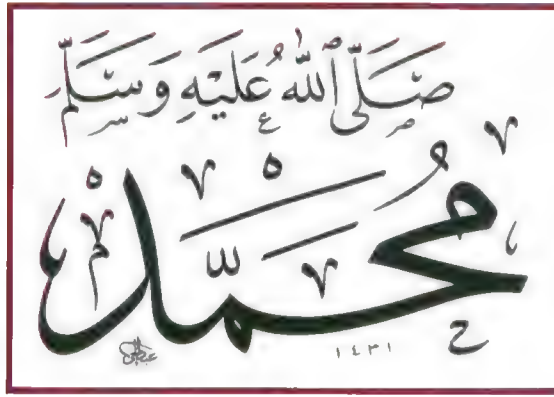 صَلَّى اللّٰهُ عَلَيْهِ وَسَلَّمَ
مُحَمَّد
١٤٣١